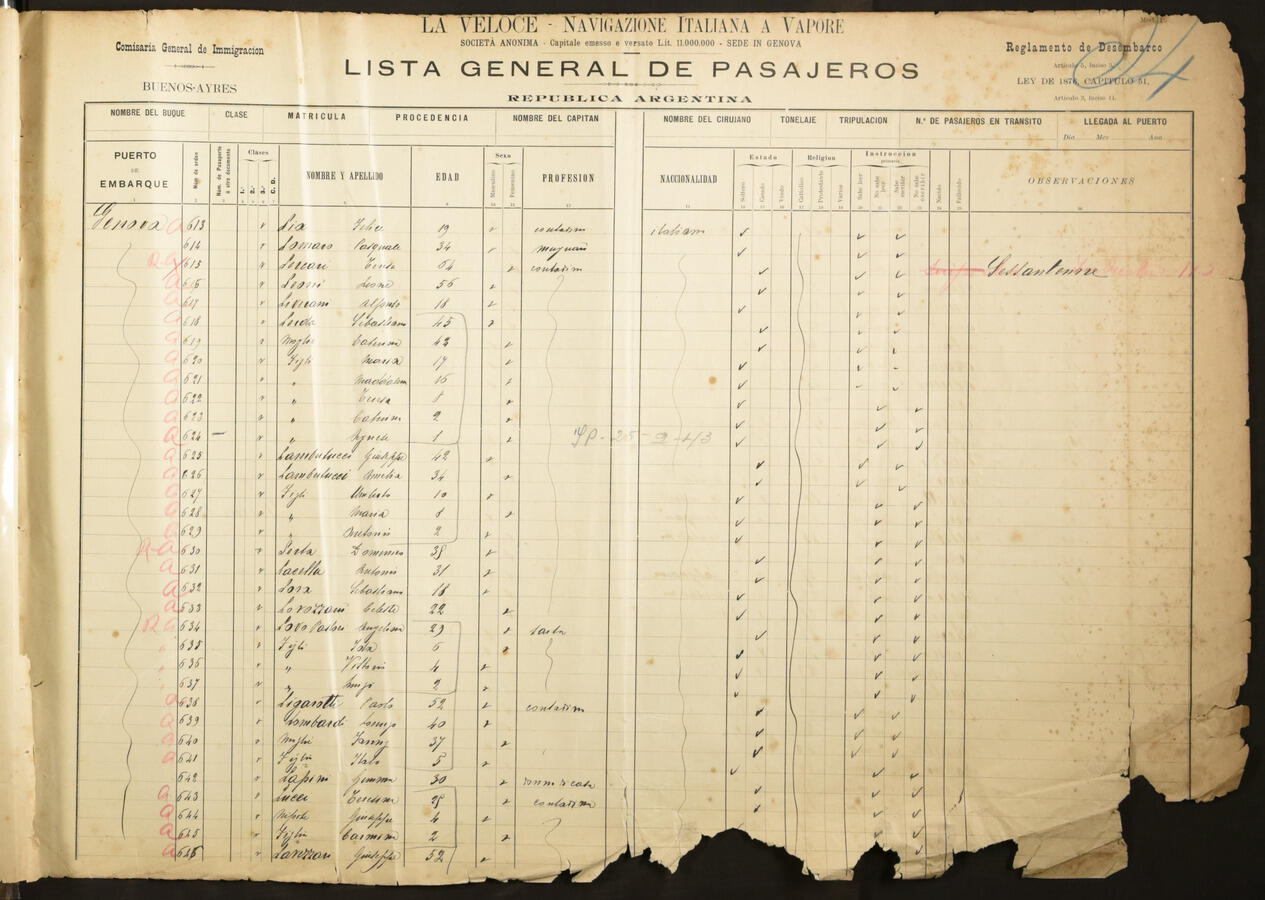 LA VELOCE - NAVIGAZIONE ITALIANA A VAPORE
SOCIETÀ ANONIMA - Capitale emesso e versato L.it. 11.000.000 - SEDE IN GENOVA
Comisaria General de Immigracion
BUENOS-AYRES
LISTA GENERAL DE PASAJEROS
REPUBLICA ARGENTINA
Reglamento de Desembarco
Articulo 5, Inciso
LEY DE 1876, CAPITULO 51,
Articulo 3, Inciso 11.
24
NOMBRE DEL BUQUE CLASE MATRICULA PROCEDENCIA NOMBRE DEL CAPITAN NOMBRE DEL CIRUJANO TONELAJE TRIPULACION N.º DE PASAJEROS EN TRANSITO LLEGADA AL PUERTO
Dia Mes Ano
PUERTO DE EMBARQUE Núm de orden Núm. de Pasaporte ó otro documento Clases 1.ª 2.ª 3.ª C. D. NOMBRE Y APELLIDO EDAD Sexo Masculino Femenino PROFESION NACCIONALIDAD Estado Soltero Casado Viudo Religion Catolico Protestante Varios Instruccion primaria Sabe leer No sabe leer Sabe escribir No sabe escribir OBSERVACIONES
Genova 613 Lia Felice 19 contadin italiani
614 Lomaro Pasquale 34
615 Lercari Teresa 64 contadin Sessantenne
616 Leoni Leone 56
617 Liverani Alfonso 18
618 Lerda Sebastiano 45
619 Moglie Caterina 42
620 Figli Maria 17
621 " Maddalena 15
622 " Teresa 8
623 " Caterina 2
624 " Agnese 1
SP-25-9-43
625 Lambulucci Giuseppe 42
626 Lambulucci Amelia 34
627 Figli Umberto 10
628 " Maria 8
629 " Antonio 2
630 Domenico 38
631 Lacella Antonio 31
632 Lora Sebastiano 18
633 Lorozzani Celeste 22
634 Lovo Pastori Angelina 29 sarta
635 Figli 6
636 " Vittorio 4
637 " Luigi 2
638 Ligarotti Paolo 52 contadin
639 Lombardi Luigi 40
640 Moglie Fanny 37
641 Figlio Italo 5
642 Lapini Gemma 30
643 Lucci Teresina 28 contadina
644 Nipote Giuseppe 4
645 Figlia Carmina 2
646 Lavezzari Giuseppe 52